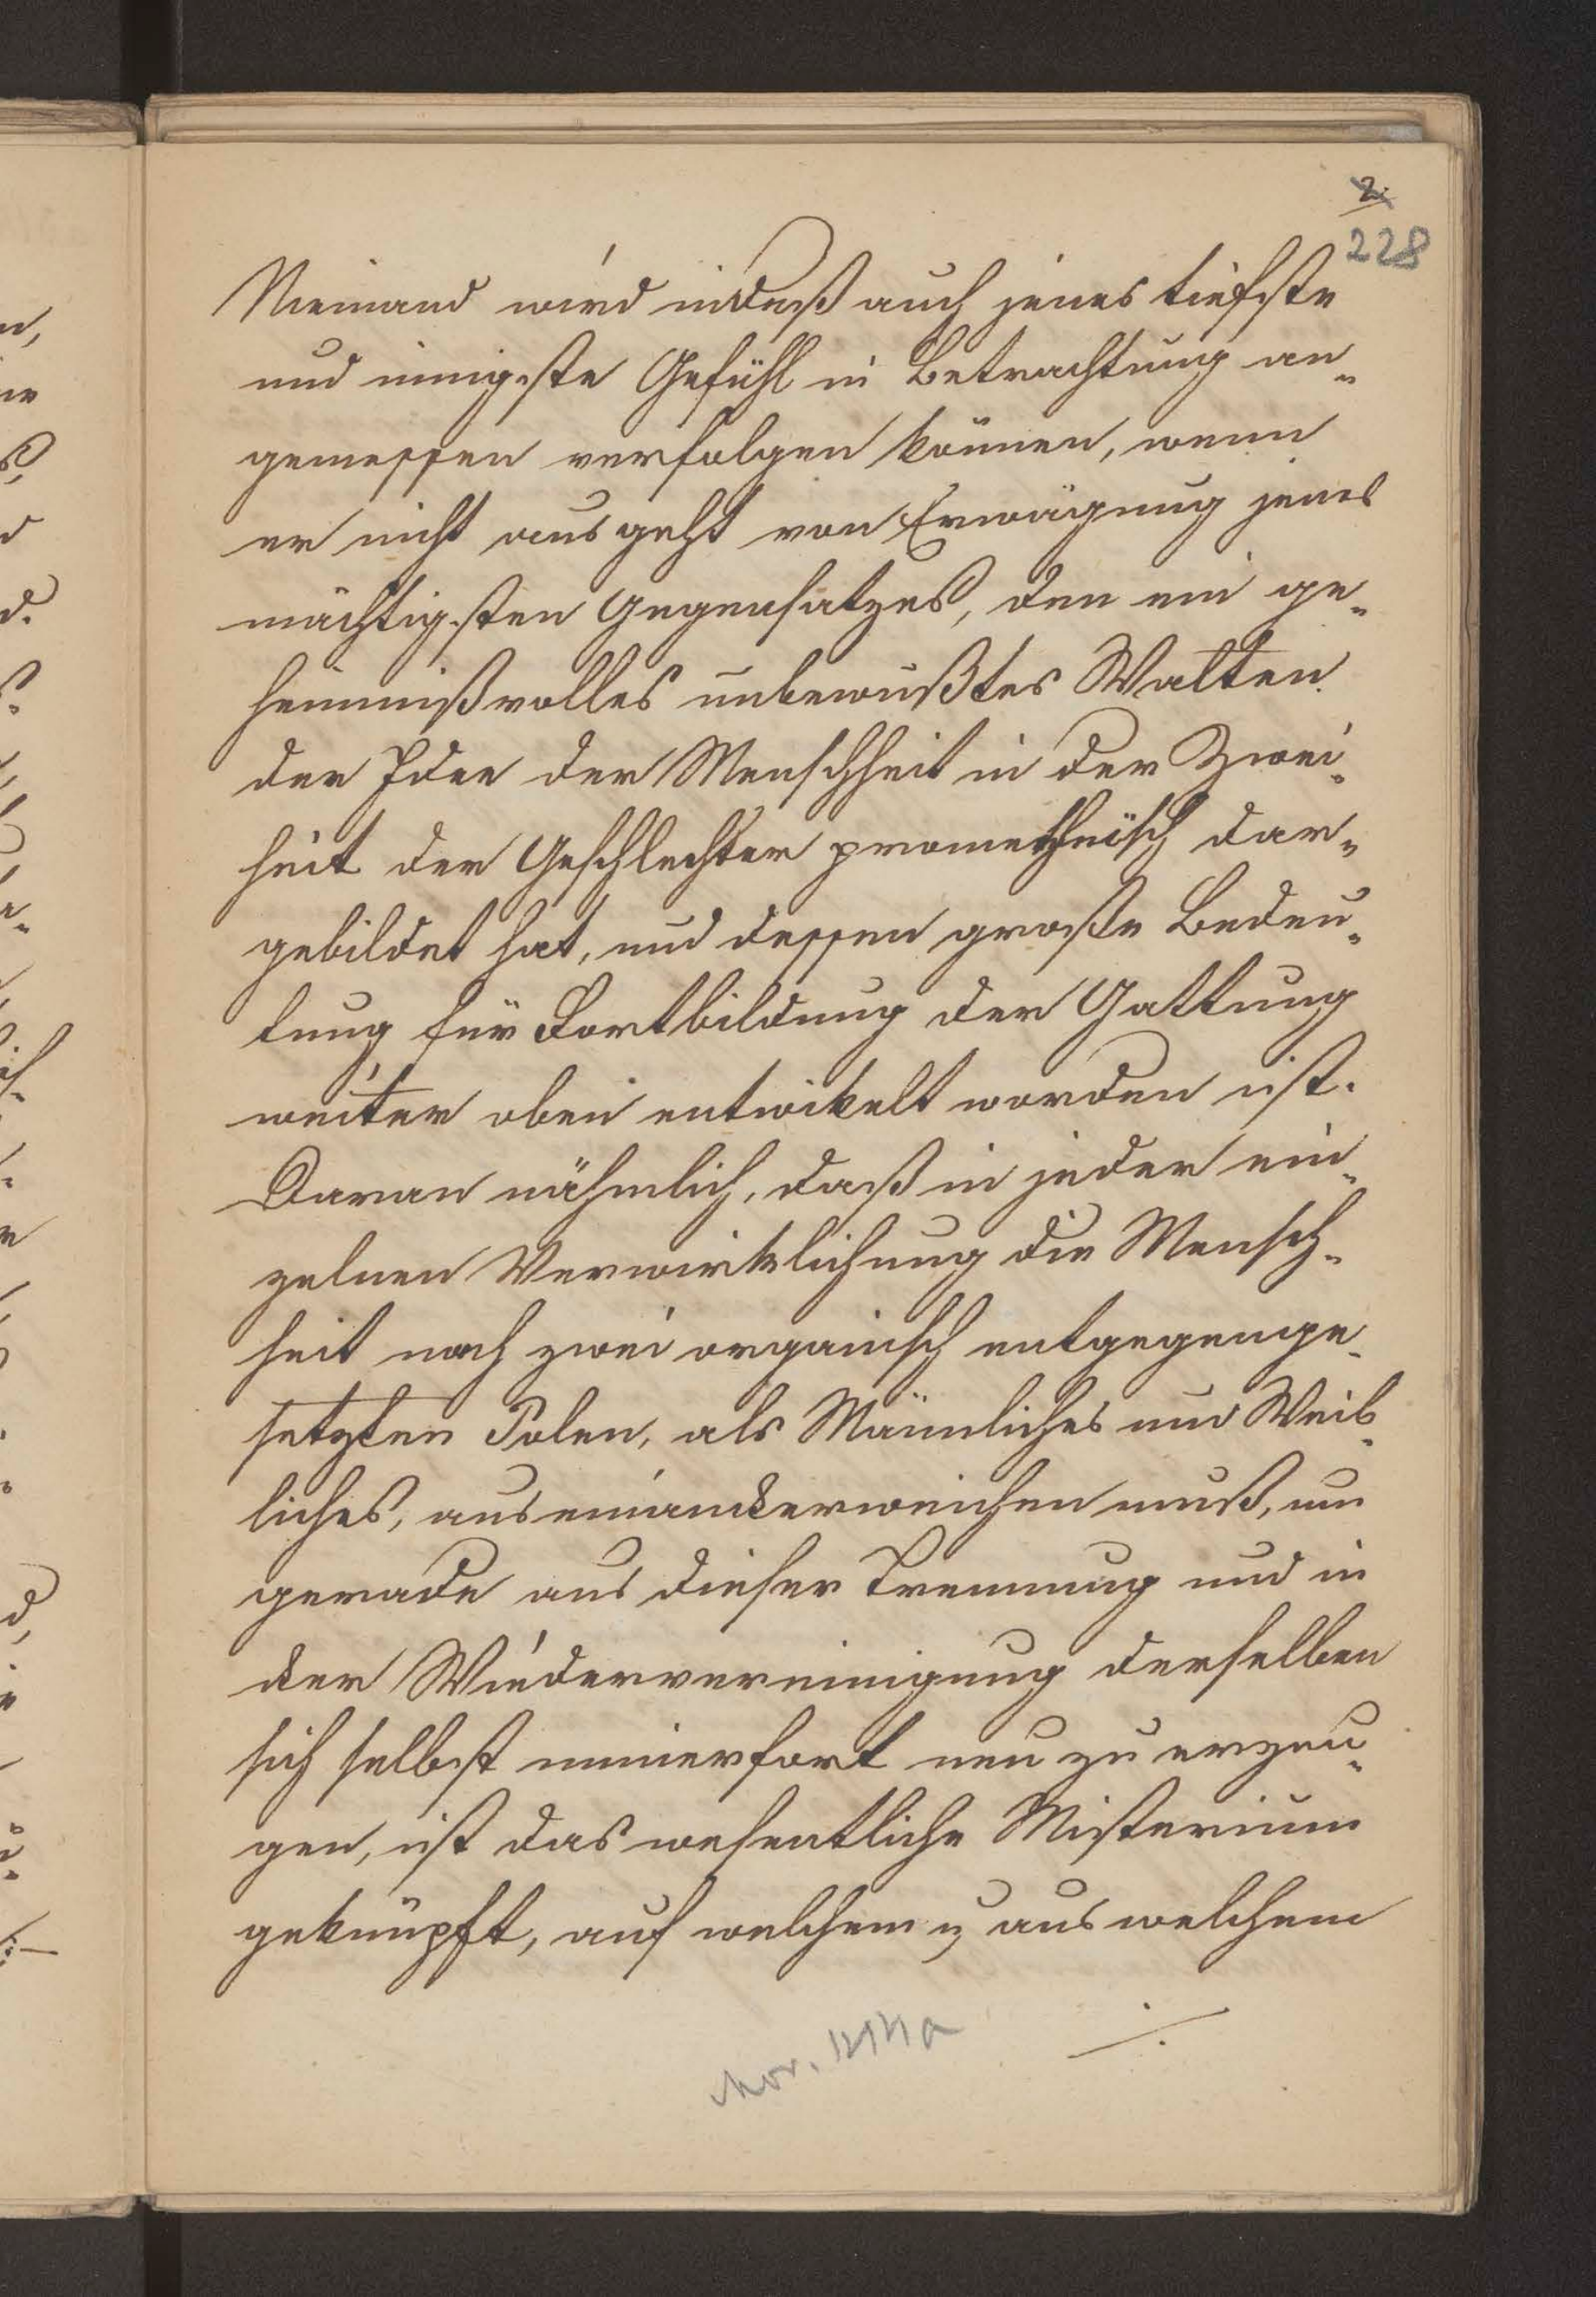 2.
228
Niemand wird indeß auch jenes tiefste
und innigste Gefühl in Betrachtung an-
gemessen verfolgen können, wenn
er nicht ausgeht von Erwägung jenes
mächtigsten Gegensatzes, den ein ge-
heimnißvolles unbewußtes Walten
der Idee der Menschheit in der Zwei-
heit der Geschlechter prometheïsch dar-
gebildet hat, und dessen große Bedeu-
tung für Fortbildung der Gattung
weiter oben entwikelt worden ist.
Daran nähmlich, daß in jeder ein-
zelnen Verwirklichung die Mensch-
heit nach zwei organisch entgegenge-
setzten Polen, als Männliches und Weib-
liches, auseinanderweichen muß, um
gerade aus dieser Trennung und in
der Wiedervereinigung derselben
sich selbst immerfort neu zu erzeu-
gen, ist das wesentliche Misterium
geknüpft, auf welchem u aus welchem
./.